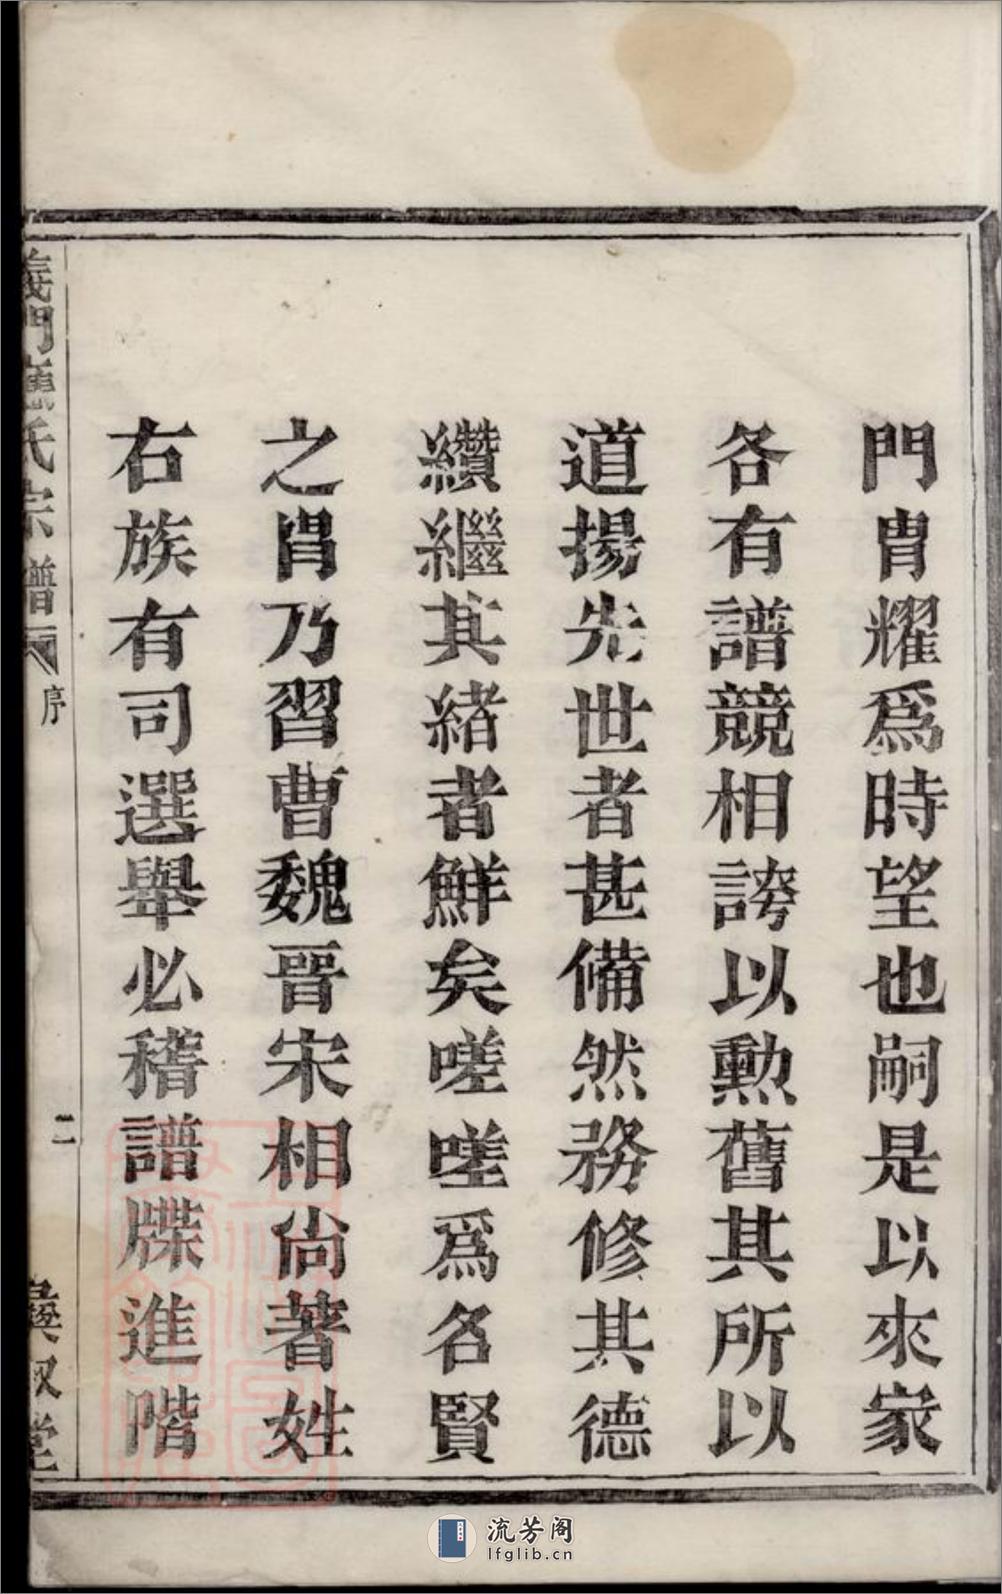 門胄耀爲時望也嗣是以來家
各有譜競相誇以勲舊其所以
道揚先世者甚備然務修其德
纘繼其緒者鮮矣嗟嗟爲名賢
之胄乃習曹魏晉宋相尚著姓
右族有司選舉必稽譜牒進階
義門應氏宗譜
序
二
彝叙堂
流芳阁
lfglib.cn